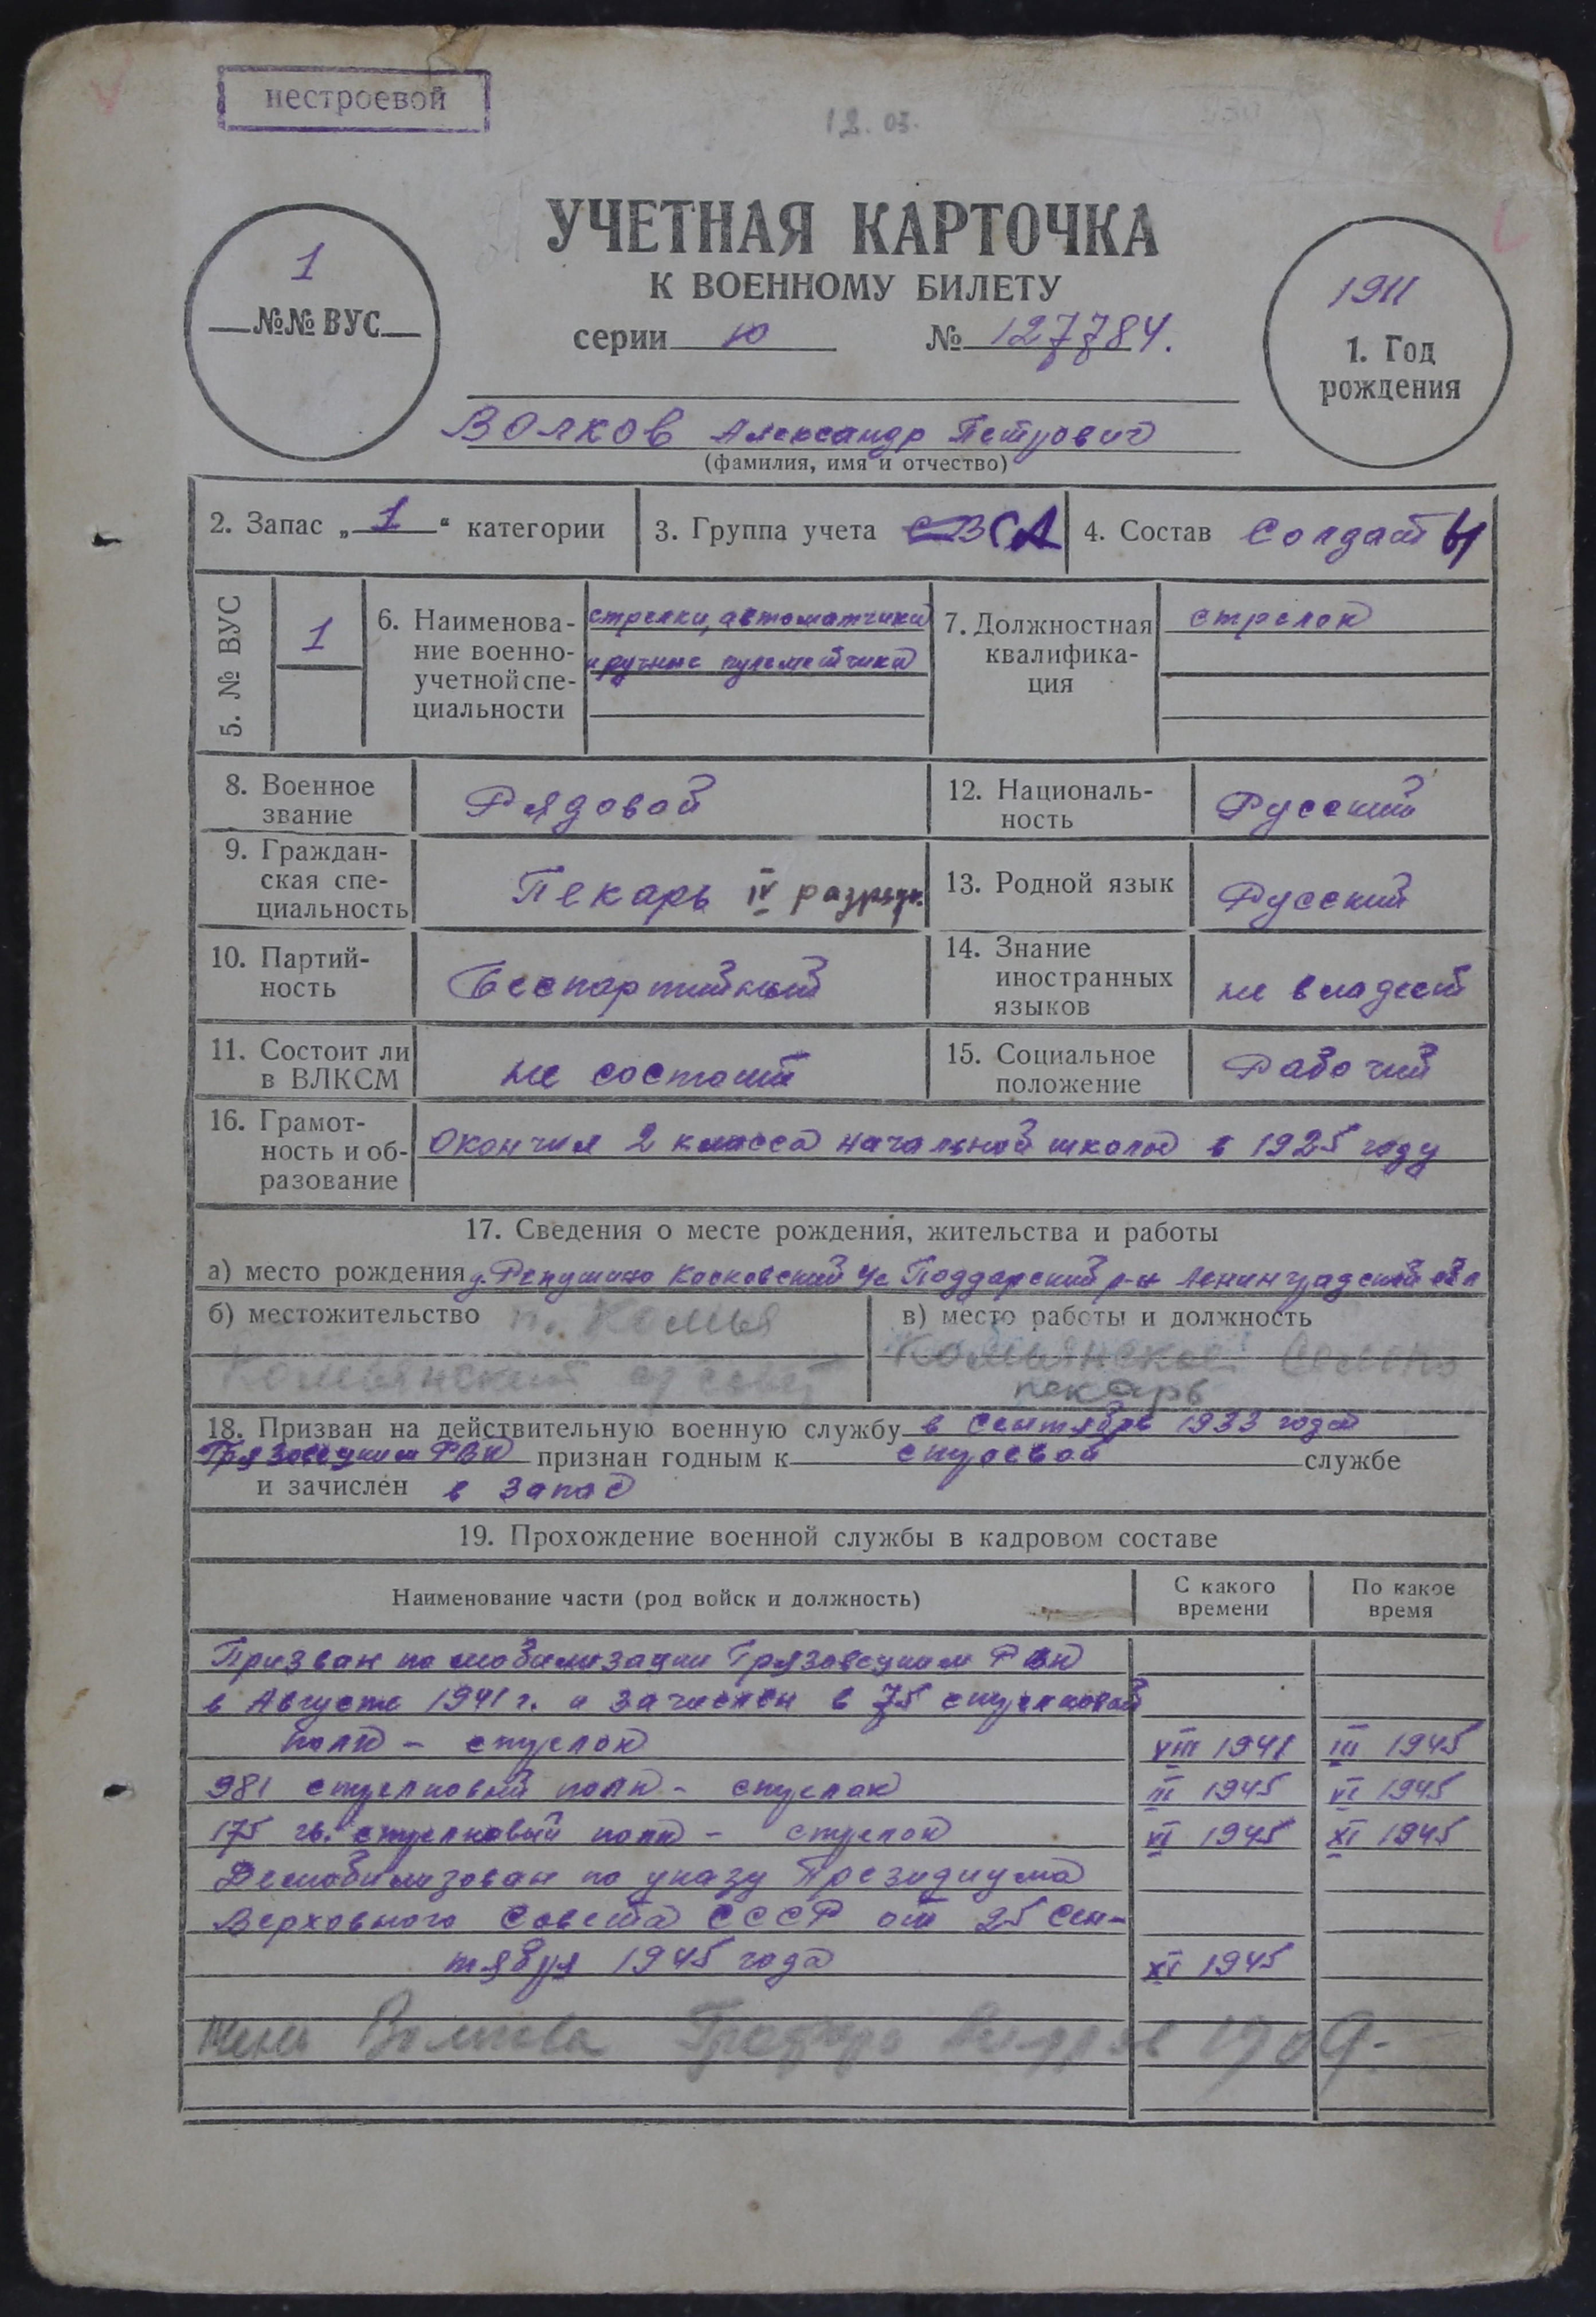 нестроевой
12.03.
УЧЕТНАЯ КАРТОЧКА
К ВОЕННОМУ БИЛЕТУ
серии Ю № 127784.
1
№№ ВУС
1911
1. Год
рождения
Волков Александр Петрович
(фамилия, имя и отчество)
2. Запас „1“ категории
3. Группа учета СА
4. Состав Солдаты
5. № ВУС
1
6. Наименова-
ние военно-
учетной спе-
циальности
стрелки, автоматчики
и ручные пулеметчики
7. Должностная
квалифика-
ция
стрелок
8. Военное
звание
Рядовой
12. Националь-
ность
Русский
9. Граждан-
ская спе-
циальность
Пекарь IV разряда
13. Родной язык
Русский
10. Партий-
ность
Беспартийный
14. Знание
иностранных
языков
не владеет
11. Состоит ли
в ВЛКСМ
не состоит
15. Социальное
положение
Рабочий
16. Грамот-
ность и об-
разование
Окончил 2 класса начальной школы в 1925 году
17. Сведения о месте рождения, жительства и работы
а) место рождения д. Поддорский р-н Ленинградской обл
б) местожительство п. Комья
Комьянский с/совет
в) место работы и должность
Комьянское Сельпо
пекарь
18. Призван на действительную военную службу в сентябре 1933 года
Грязовецким РВК признан годным к строевой службе
и зачислен в запас
19. Прохождение военной службы в кадровом составе
Наименование части (род войск и должность)
С какого
времени
По какое
время
Призван по мобилизации Грязовецким РВК
в Августе 1941 г. и зачислен в 75 стрелковый
полк - стрелок VIII 1941 III 1945
981 стрелковый полк - стрелок III 1945 VI 1945
175 гв. стрелковый полк - стрелок VI 1945 XI 1945
Демобилизован по указу Президиума
Верховного Совета СССР от 25 Сен-
тября 1945 года XI 1945
Жена Волкова 1909.